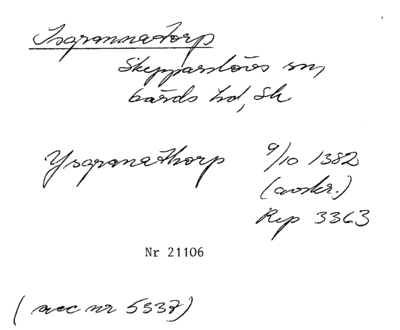 Isgrannatorp
Skepparslövs sn,
Gärds hd, Sk
Ysgrannathorp 9/10 1382
(avskr.)
Rep 3363
Nr 21106
(acc nr 5337)